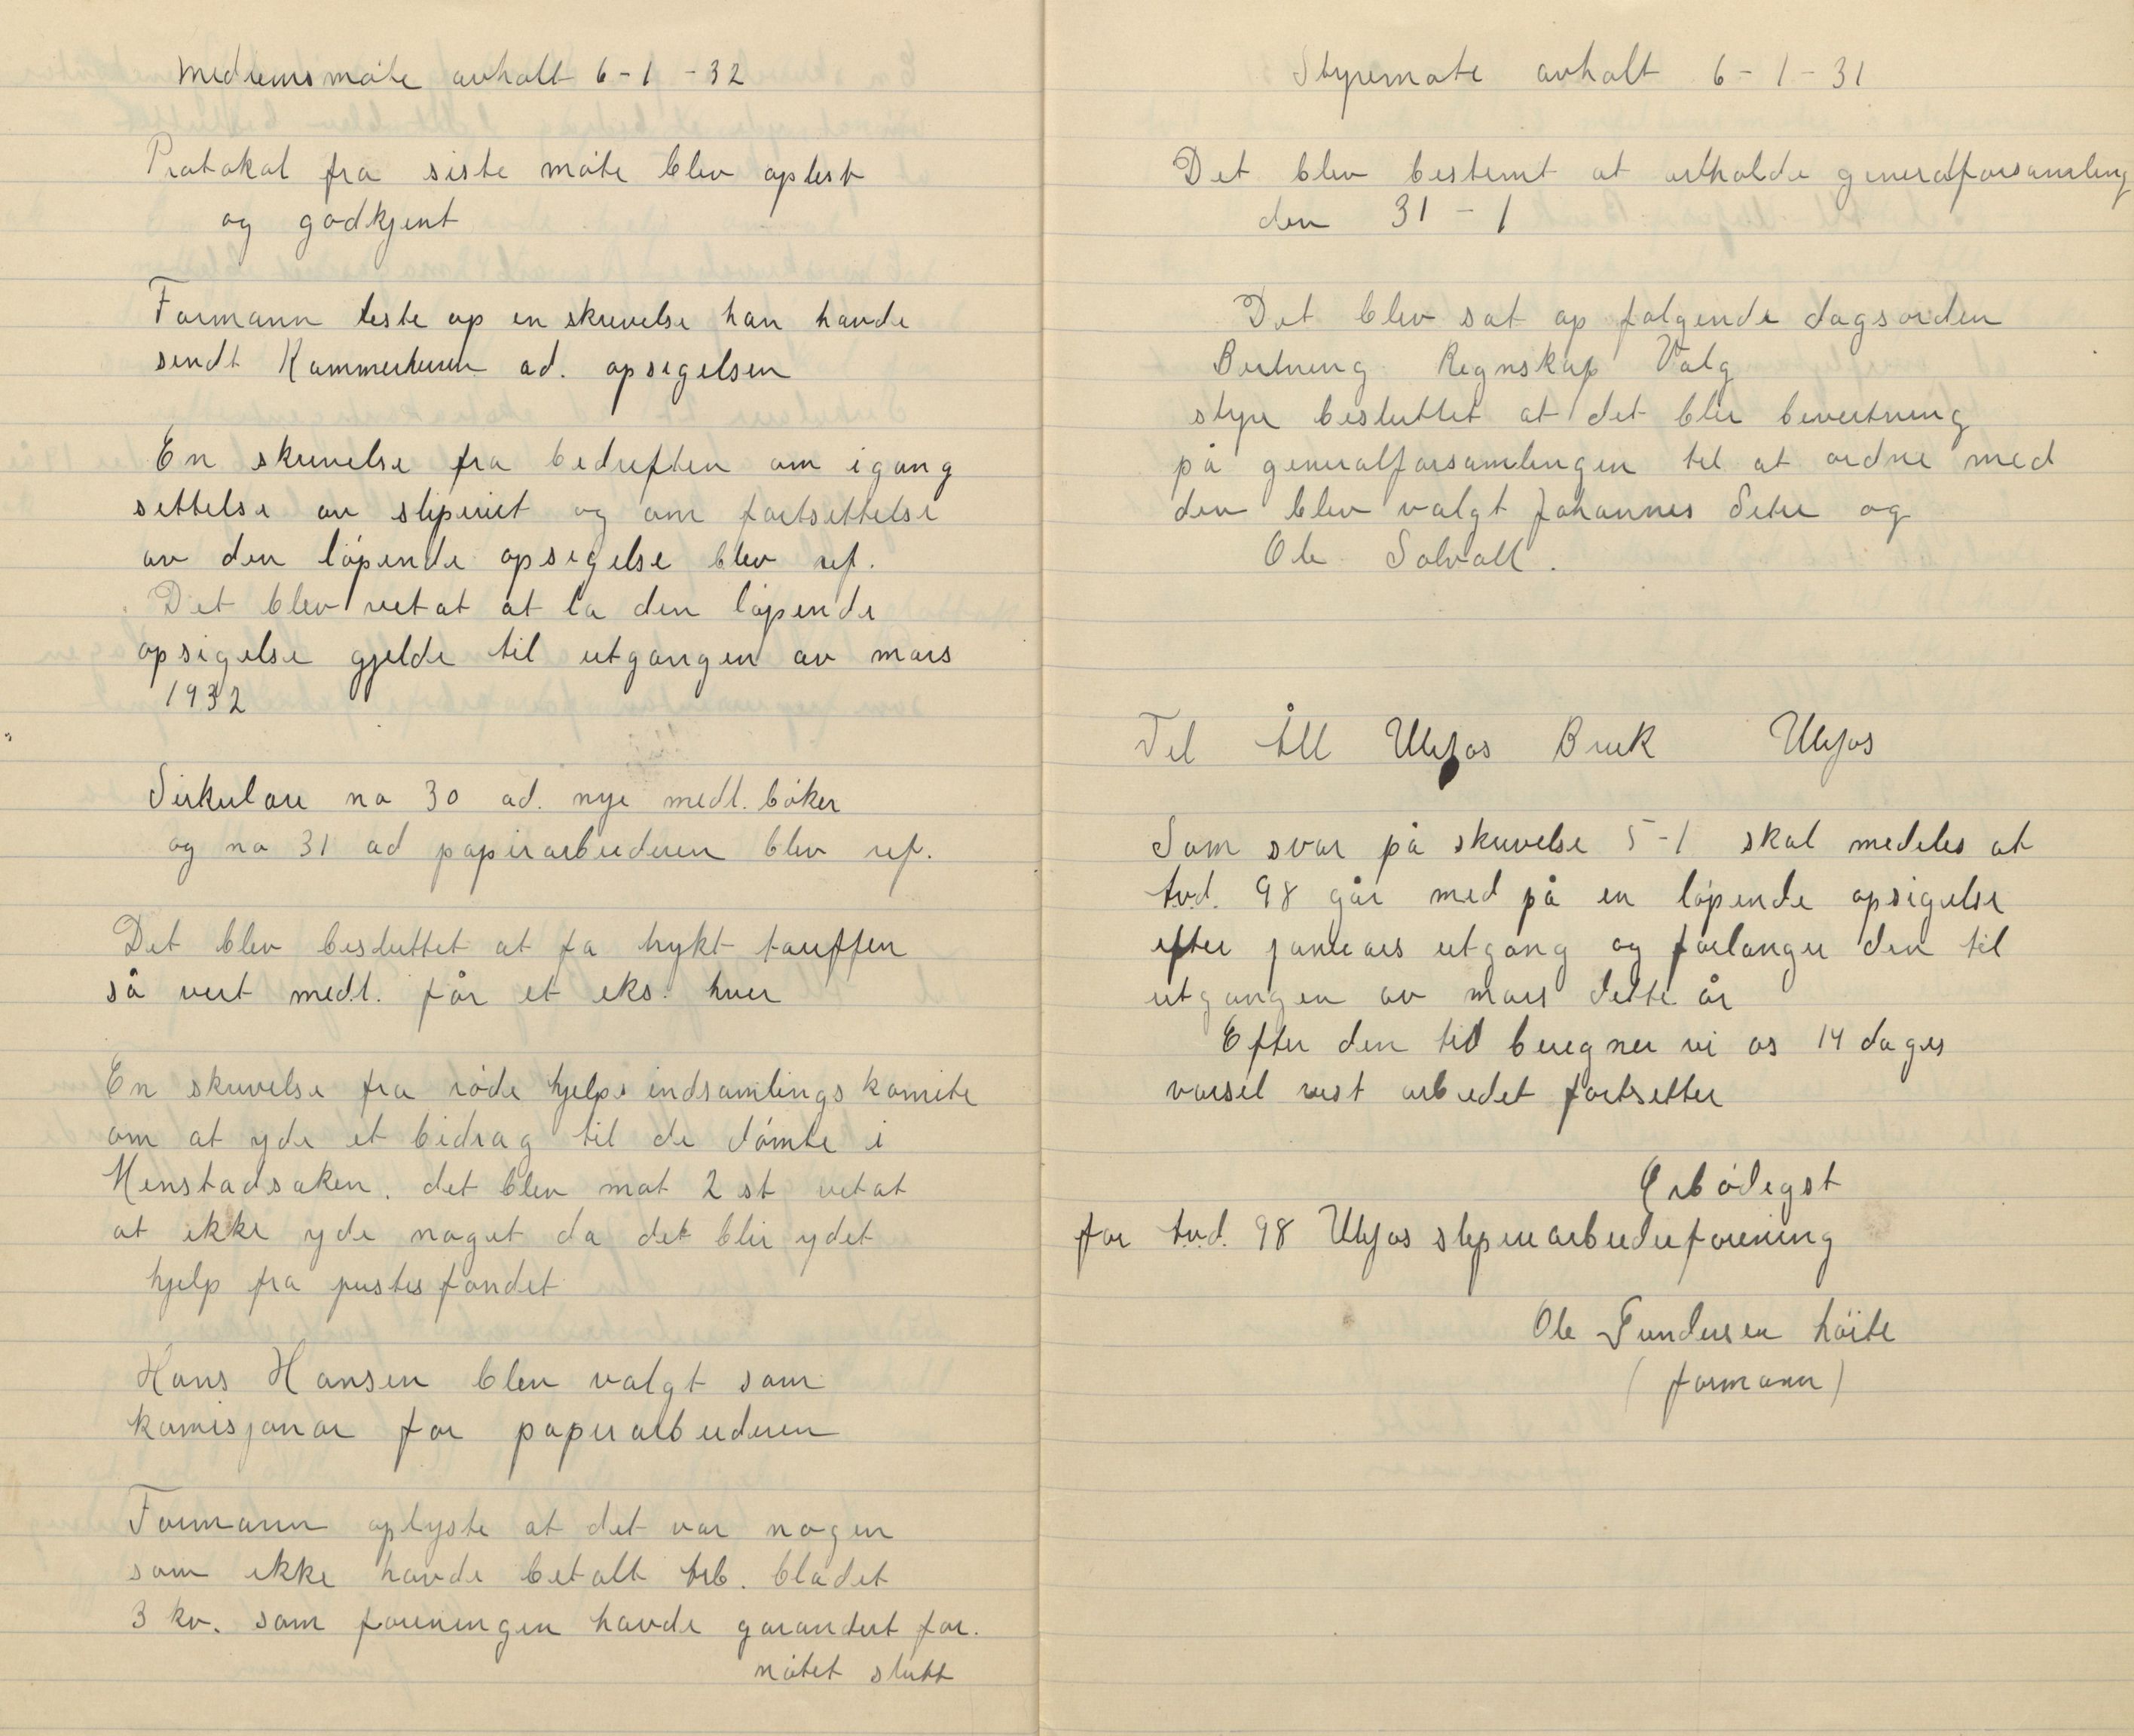 Medlemsmøte avholt 6-1-32
Protokol fra siste møte blev oplest
og godkjent
Formann leste op en skrivelse han havde
sendt Kammerherren ad. opsigelsen
En skrivelse fra bedriften om igang
settelse av sliperiet og om fortsettelse
av den løpende opsigelse blev ref.
Det blev vetat at la den løpende
opsigelse gjelde til utgangen av mars
1932
Sirkulære no 30 ad. nye medl. bøker
og no 31 ad papirarbeideren blev ref.
Det blev besluttet at fa trykt tariffen
så vert medl. får et eks. hver
En skrivelse fra røde hjelps indsamlings komite
om at yde et bidrag til de dømte i
Menstadsaken. det blev mot 2 st vetat
at ikke yde noget da det blir ydet
hjelp fra justisfondet
Hans Hansen blev valgt som
komisjonær for papirarbeideren
Formann oplyste at det var nogen
som ikke havde betalt Arb. bladet
3 kv. som foreningen havde garantert for.
møtet slutt
Styremøte avholt 6-1-31
Det blev bestemt at avholde generalforsamling
den 31-1
Det blev sat op følgende dagsorden
Beretning Regnskap Valg
styre besluttet at det blir bevertning
på generalforsamlingen til at ordne med
den blev valgt Johannes Setre og
Ole Solvoll.
Til A/S Ulefos Bruk Ulefos
Som svar på skrivelse 5-1 skal medeles at
Avd. 98 går med på en løpende opsigelse
efter januars utgang og forlanger den til
utgangen av mars dette år
Efter den tid beregner vi os 14 dages
varsel vist arbeidet fortsetter
Ærbødigst
for Avd. 98 Ulefos sliperiarbeiderforening
Ole Gundersen høite
(formann)